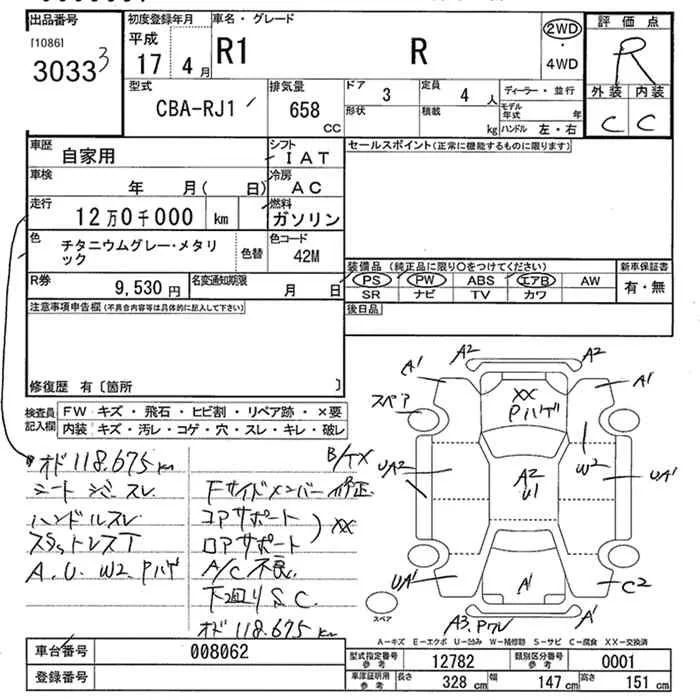 出品番号
[1086]
3033 3
初度登録年月
平成
17 4 月
車名・グレード
R1 R
2WD
・
4WD
評価点
R
外装 内装
C C
型式
CBA-RJ1
排気量
658
CC
ドア
3
定員
4 人
形状
積載
kg
ディーラー・並行
モデル年式 年
ハンドル 左・右
車歴
自家用
シフト
IAT
セールスポイント(正常に機能するものに限ります)
車検
年 月( 日)
冷房
AC
走行
12万0千000 km
燃料
ガソリン
色
チタニウムグレー・メタリ
ック
色替
色コード
42M
R券
9,530 円
名変通知期限
月 日
装備品 (純正品に限り○をつけてください)
PS PW ABS エアB AW
SR ナビ TV カワ
新車保証書
有・無
注意事項申告欄(不具合内容等は具体的に記入して下さい)
後日品
修復歴 有〔箇所 〕
検査員
記入欄
FW キズ・飛石・ヒビ割・リペア跡・×要
内装 キズ・汚レ・コゲ・穴・スレ・キレ・破レ
オド118.675km
シート シミ スレ
ハンドルスレ
スタットレスT
A.U.W2.Pハゲ
B/TX
Fサイドメンバー修正
コアサポート
ロアサポート
) XX
A/C不良
下回りS.C.
オド118.675km
A1
A2
A2
A1
スペア
XX
Pハゲ
W2
UA2
A2
U1
UA1
UA1
A1
C2
スペア
A3.Pワレ
A1
A-キズ E-エクボ U-凹ミ W-補修跡 S-サビ C-腐食 XX-交換済
車台番号
008062
登録番号
型式指定番号
参考
12782
類別区分番号
参考
0001
車庫証明用
参考
長さ
328 cm
幅
147 cm
高さ
151 cm